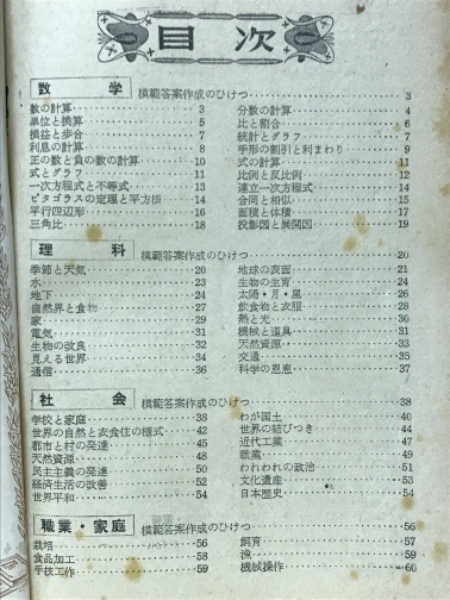 目次
数学 模範答案作成のひけつ 3
数の計算 3 分数の計算 4
単位と換算 5 比と割合 6
損益と歩合 7 統計とグラフ 7
利息の計算 8 手形の割引と利まわり 9
正の数と負の数の計算 10 式の計算 11
式とグラフ 11 比例と反比例 12
一次方程式と不等式 13 連立一次方程式 14
ピタゴラスの定理と平方根 14 合同と相似 15
平行四辺形 16 面積と体積 17
三角比 18 投影図と展開図 19
理科 模範答案作成のひけつ 20
季節と天気 20 地球の表面 21
水 23 生物の生育 24
地下 24 太陽・月・星 26
自然界と食物 27 飲食物と衣服 28
家 29 熱と光 30
電気 31 機械と道具 31
生物の改良 32 天然資源 33
見える世界 34 交通 35
通信 36 科学の恩恵 37
社会 模範答案作成のひけつ 38
学校と家庭 38 わが国土 40
世界の自然と衣食住の様式 42 世界の結びつき 44
都市と村の発達 45 近代工業 47
天然資源 48 職業 49
民主主義の発達 50 われわれの政治 51
経済生活の改善 52 文化遺産 53
世界平和 54 日本歴史 54
職業・家庭 模範答案作成のひけつ 56
栽培 56 飼育 57
食品加工 58 漁 59
手技工作 59 機械操作 60